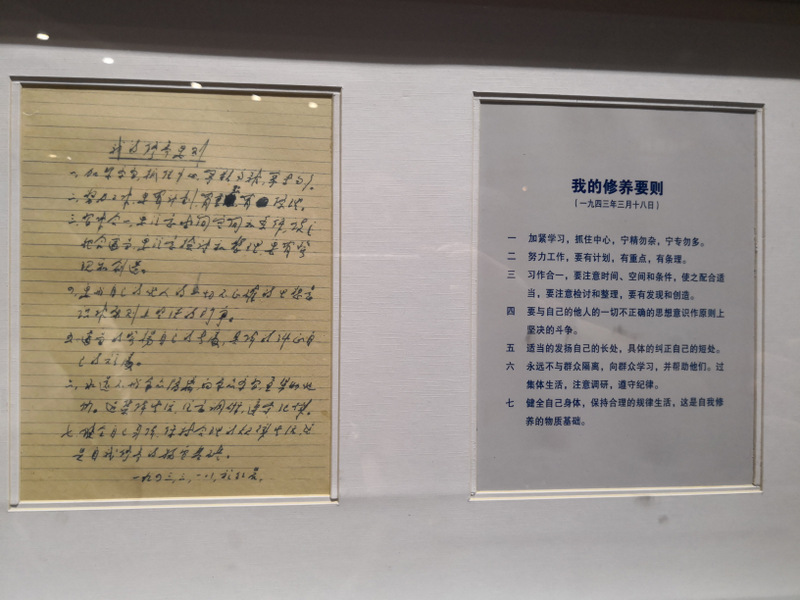 我的修养要则
一、加紧学习，抓住中心，宁精勿杂，宁专勿多。
二、努力工作，要有计划，有重点，有条理。
三、习作合一，要注意时间空间和条件，使之
配合适当，要注意检讨和整理，要有发
现和创造。
四、要与自己的他人的一切不正确的思想意
识作原则上坚决的斗争。
五、适当的发扬自己的长处，具体的纠正自
己的短处。
六、永远不与群众隔离，向群众学习，并帮助他
们。过集体生活，注意调研，遵守纪律。
七、健全自己身体，保持合理的规律生活，这
是自我修养的物质基础。
一九四三，三，一八，于红岩。
我的修养要则
（一九四三年三月十八日）
一 加紧学习，抓住中心，宁精勿杂，宁专勿多。
二 努力工作，要有计划，有重点，有条理。
三 习作合一，要注意时间、空间和条件，使之配合适
当，要注意检讨和整理，要有发现和创造。
四 要与自己的他人的一切不正确的思想意识作原则上
坚决的斗争。
五 适当的发扬自己的长处，具体的纠正自己的短处。
六 永远不与群众隔离，向群众学习，并帮助他们。过
集体生活，注意调研，遵守纪律。
七 健全自己身体，保持合理的规律生活，这是自我修
养的物质基础。